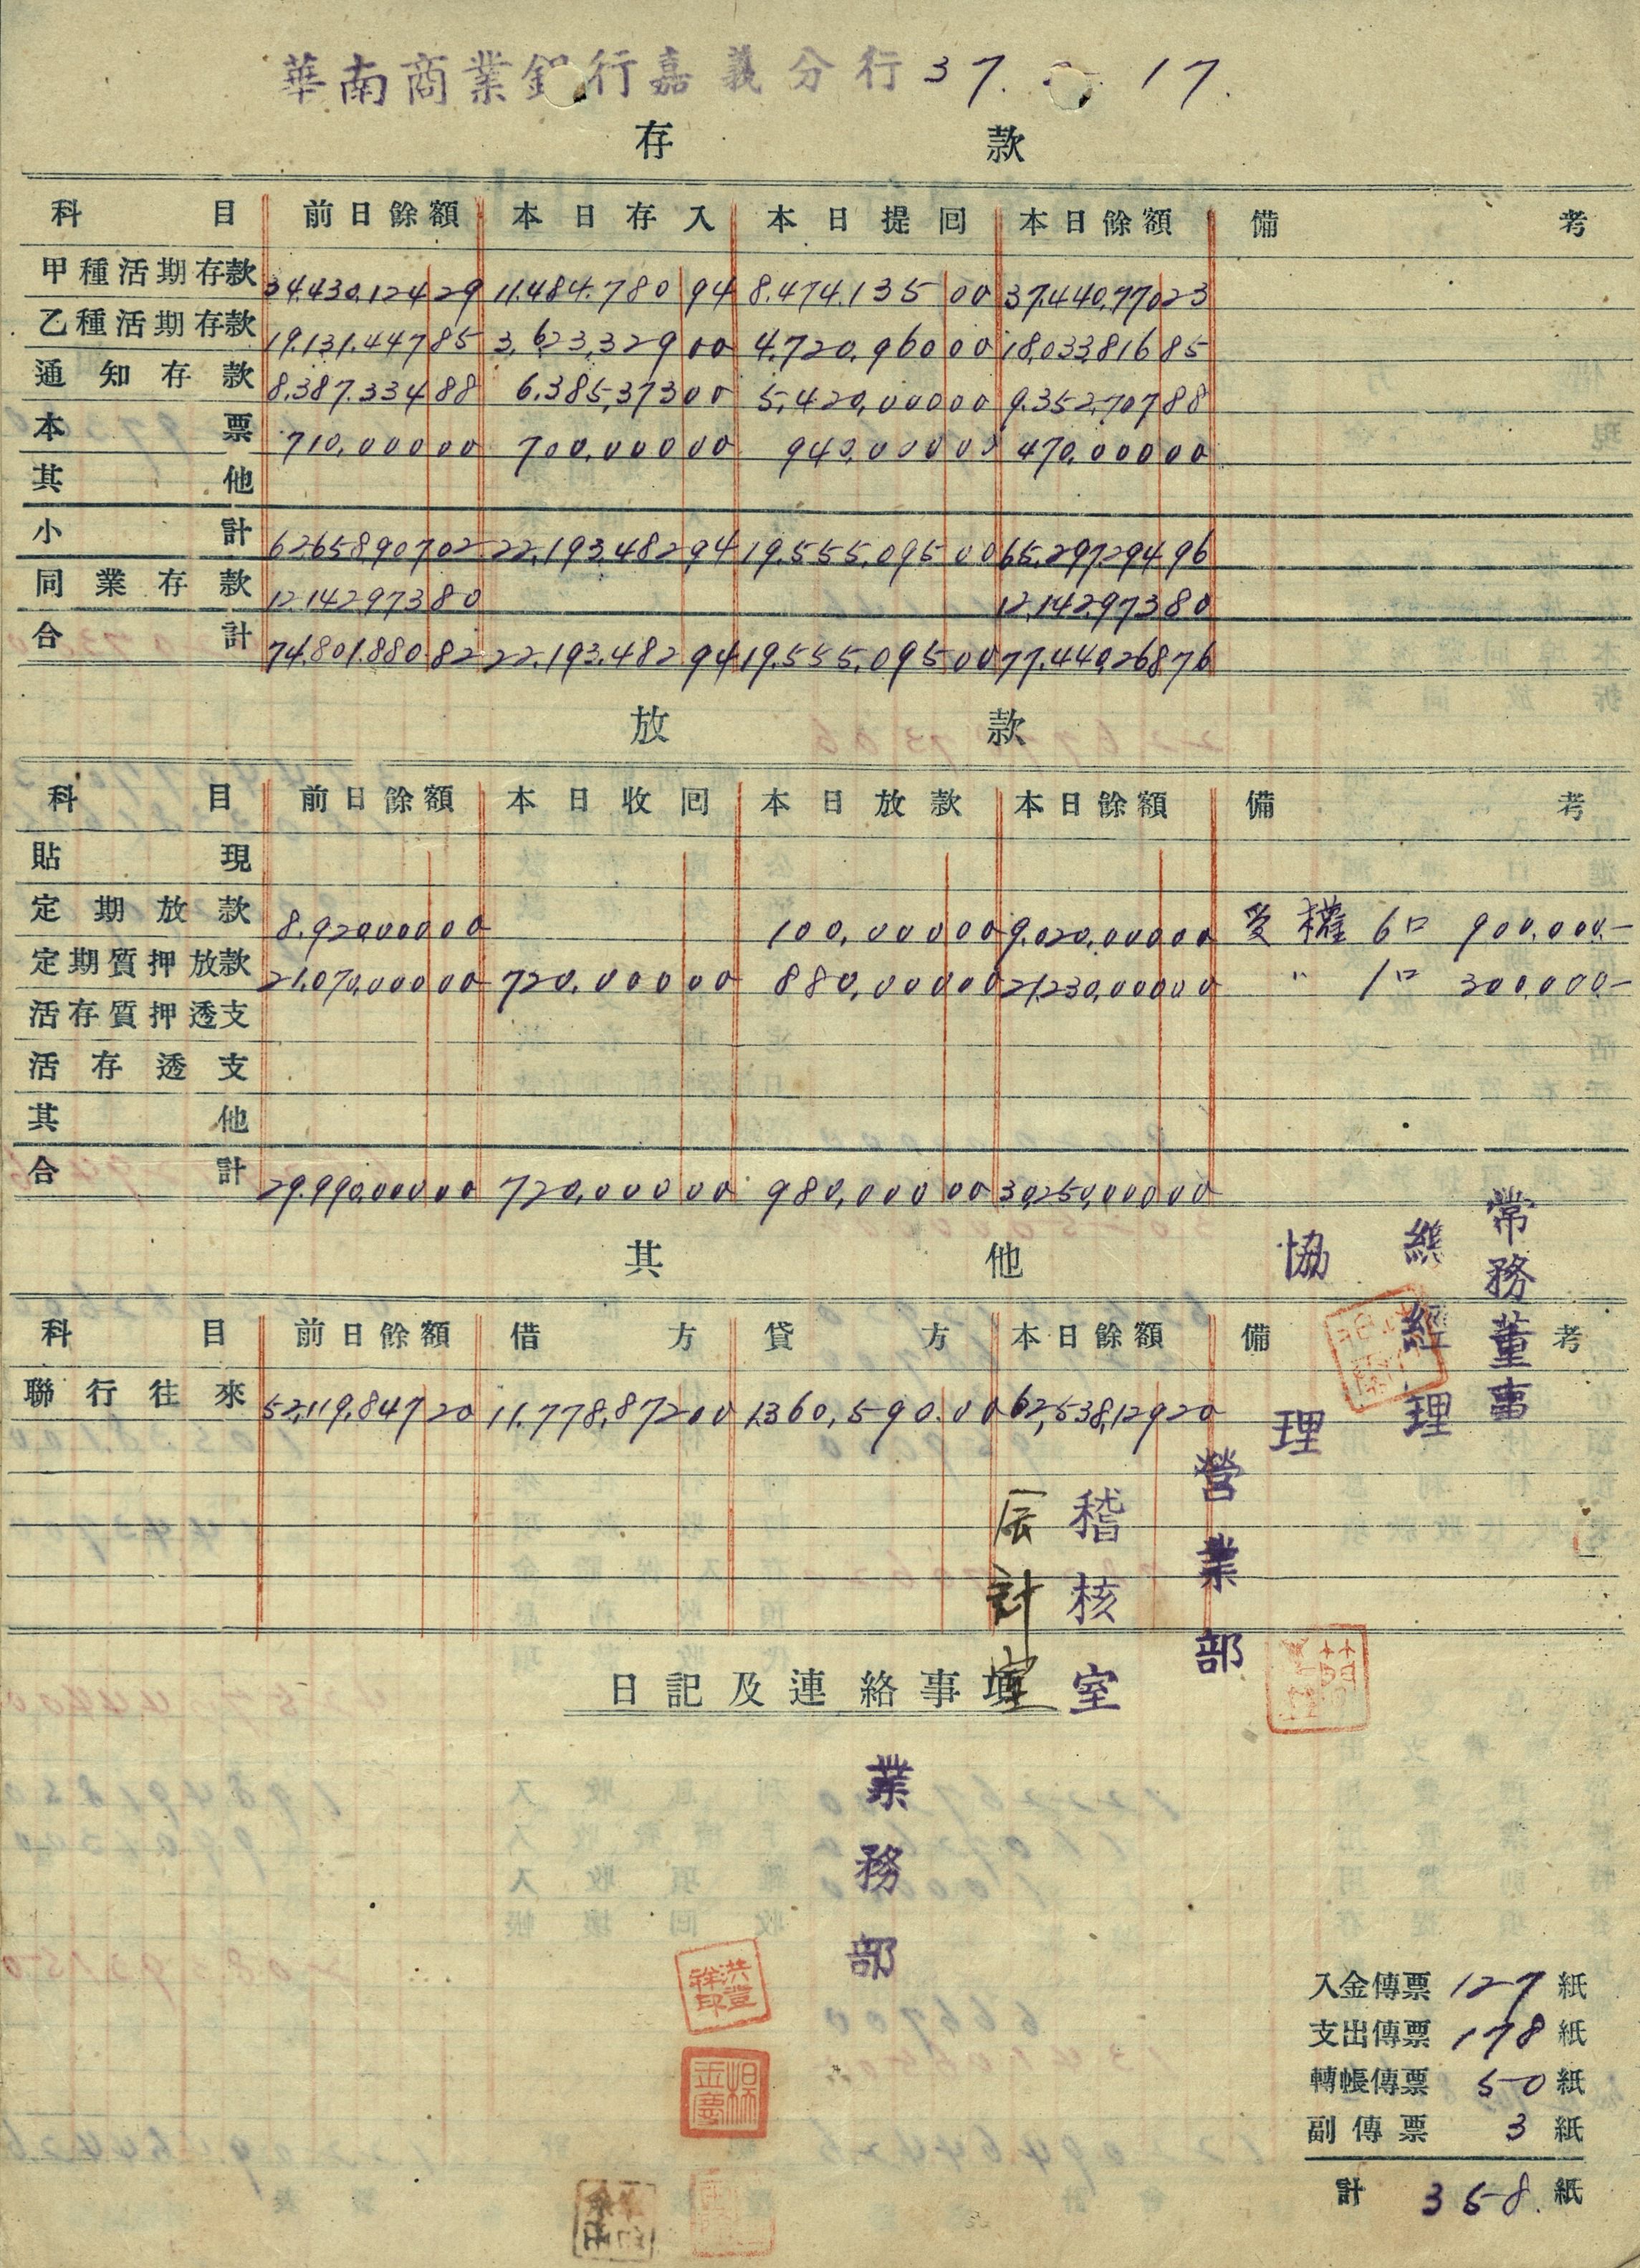 華南商業銀行嘉義分行 37. 17.
存款
科目 前日餘額 本日存入 本日提回 本日餘額 備考
甲種活期存款 34.430.124 29 11.484.780 94 8.474.135 00 37.440.770 23
乙種活期存款 19.131.447 85 3.623.329 00 4.720.960 00 18.033.816 85
通知存款 8.387.334 88 6.385.373 00 5.420.000 00 9.352.707 88
本票 710.000 00 700.000 00 940.000 00 470.000 00
其他
小計 62658.907 02 22.193.482 94 19.555.095 00 65.297.294 96
同業存款 12142973 80 12.142.973 80
合計 74.801.880.82 22.193.482 94 19.555.095 00 77.440.268 76
放款
科目 前日餘額 本日收回 本日放款 本日餘額 備考
貼現
定期放款 8.920000 00 100.000 00 9.020.000 00 受權 6口 900.000.-
定期質押放款 21.070.000 00 720.000 00 880.000 00 21.230.000 00 〃 1口 300.000.-
活存質押透支
活存透支
其他
合計 29.990.000 00 720.000 00 980.000 00 30.250.000 00
其他
科目 前日餘額 借方 貸方 本日餘額 備考
聯行往來 52.119.847 20 11.778.872 00 1.360.590.00 62.538.129 20
常務董事
總經理
協理
營業部
稽核室
計室
日記及連絡事項
業務部
洪登祥印
入金傳票 127 紙
支出傳票 178 紙
轉帳傳票 50 紙
副傳票 3 紙
計 358. 紙